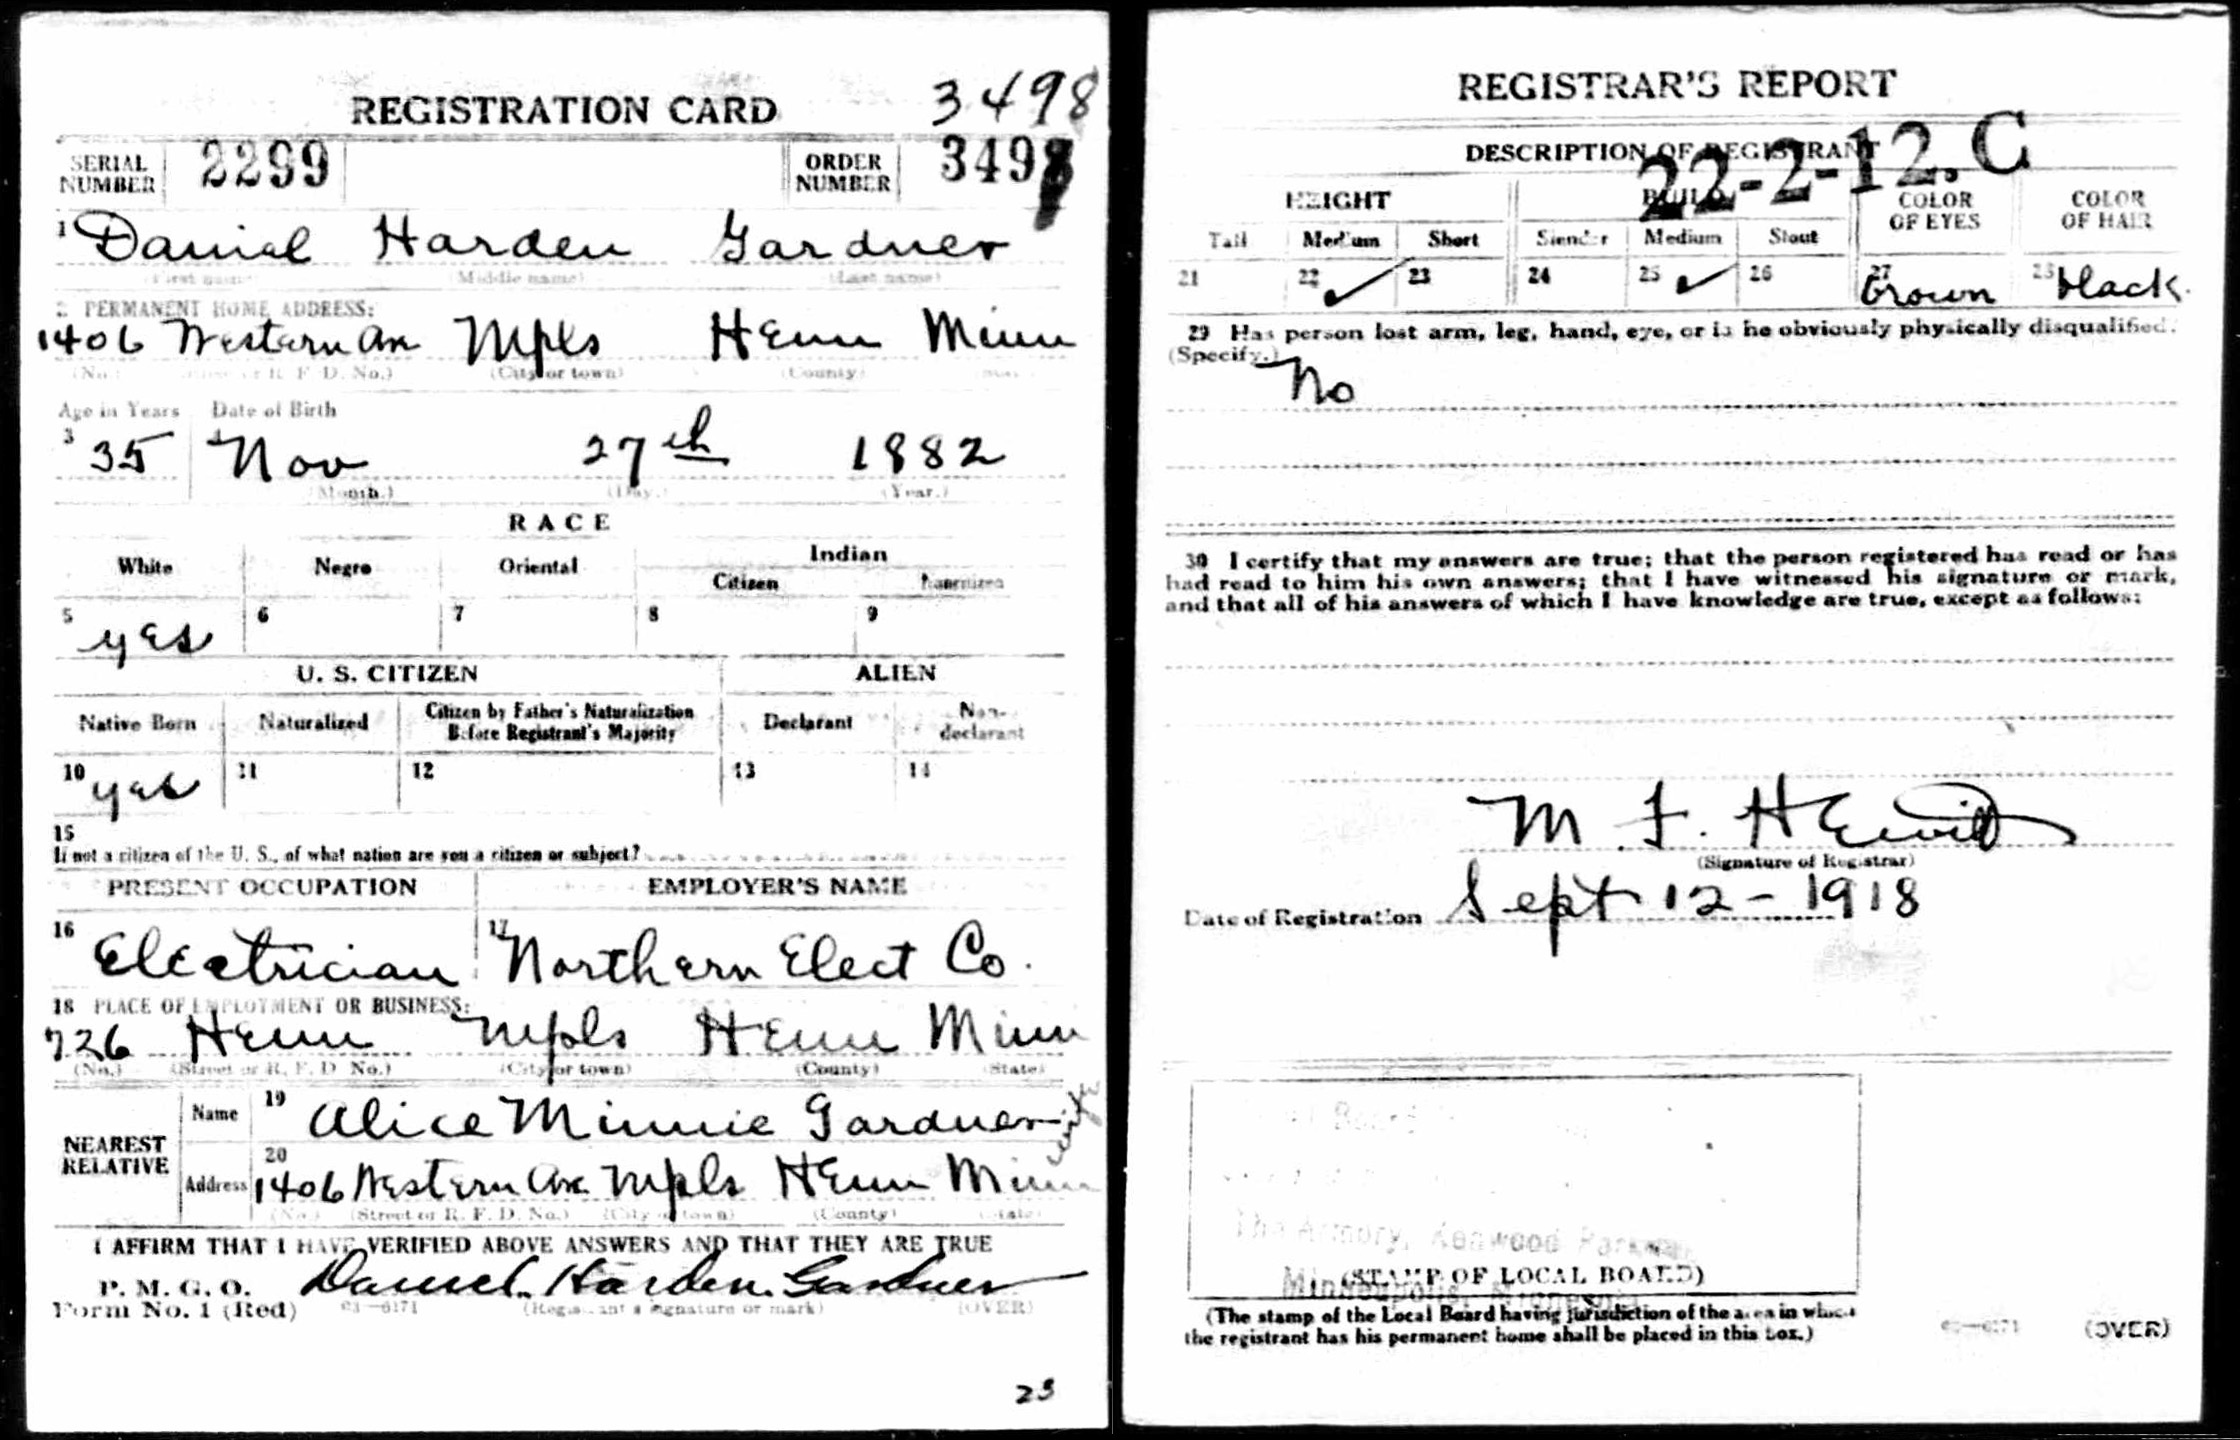 REGISTRATION CARD 3498
SERIAL NUMBER 2299 ORDER NUMBER 3498
1 Daniel Harden Gardner
(First name) (Middle name) (Last name)
2 PERMANENT HOME ADDRESS:
1406 Western Ave Mpls Henn Minn
(No.) (Street or R. F. D. No.) (City or town) (County) (State)
Age in Years Date of Birth
3 35 4 Nov 27th 1882
(Month.) (Day.) (Year.)
RACE
White Negro Oriental Indian
Citizen Noncitizen
5 yes 6 7 8 9
U. S. CITIZEN ALIEN
Native Born Naturalized Citizen by Father's Naturalization Before Registrant's Majority Declarant Non-declarant
10 yes 11 12 13 14
15
If not a citizen of the U. S., of what nation are you a citizen or subject?
PRESENT OCCUPATION EMPLOYER'S NAME
16 Electrician 17 Northern Elect Co.
18 PLACE OF EMPLOYMENT OR BUSINESS:
726 Henn Mpls Henn Minn
(No.) (Street or R. F. D. No.) (City or town) (County) (State)
NEAREST RELATIVE
Name 19 Alice Minnie Gardner wife
Address 20 1406 Western Ave Mpls Henn Minn
(No.) (Street or R. F. D. No.) (City or town) (County) (State)
I AFFIRM THAT I HAVE VERIFIED ABOVE ANSWERS AND THAT THEY ARE TRUE
P. M. G. O. Daniel Harden Gardner
Form No. 1 (Red) 03—6171 (Registrant's signature or mark) (OVER)
23
REGISTRAR'S REPORT
22-2-12. C
DESCRIPTION OF REGISTRANT
HEIGHT BUILD COLOR OF EYES COLOR OF HAIR
Tall Medium Short Slender Medium Stout
21 22 ✓ 23 24 25 ✓ 26 27 brown 28 black
29 Has person lost arm, leg, hand, eye, or is he obviously physically disqualified?
(Specify.) No
30 I certify that my answers are true; that the person registered has read or has
had read to him his own answers; that I have witnessed his signature or mark,
and that all of his answers of which I have knowledge are true, except as follows:
M. F. Hewitt
(Signature of Registrar)
Date of Registration Sept 12 - 1918
Board
The Armory, Kenwood Parkway
Minneapolis, Minnesota
(STAMP OF LOCAL BOARD)
(The stamp of the Local Board having jurisdiction of the area in which
the registrant has his permanent home shall be placed in this box.)
03—6171 (OVER)